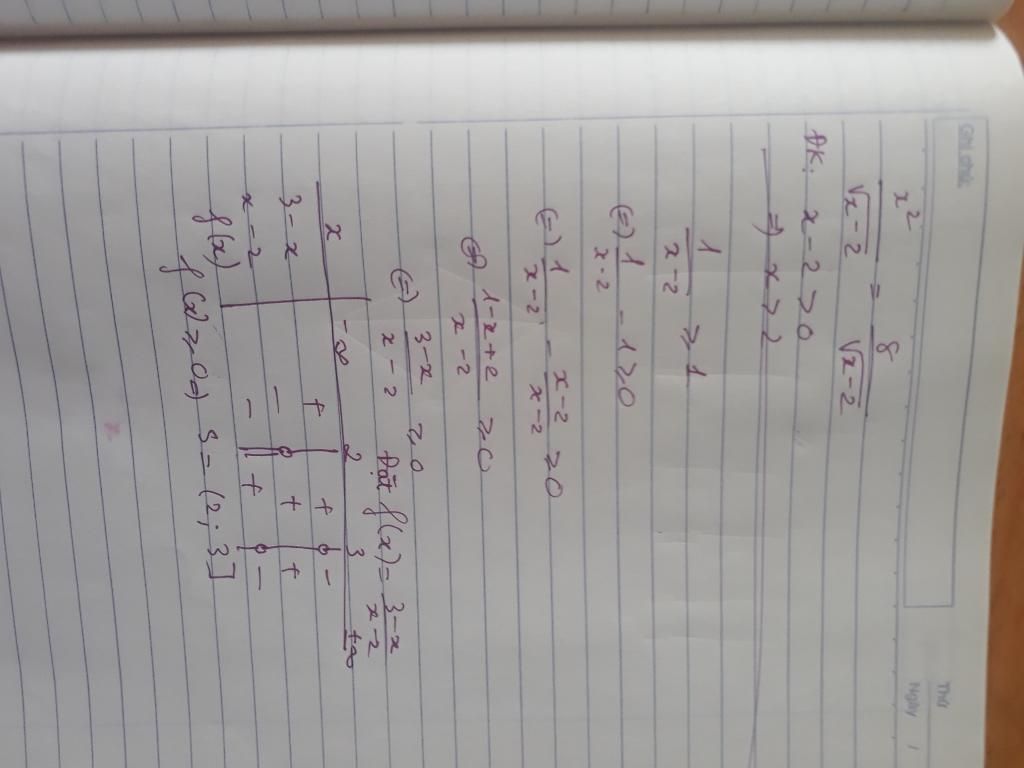 Ghi chú:
Thứ
Ngày /
x² / √x-2 = 8 / √x-2
ĐK: x - 2 > 0
⇒ x > 2
1 / x-2 ≥ 1
(=) 1 / x-2 - 1 ≥ 0
(=) 1 / x-2 - x-2 / x-2 ≥ 0
(=) 1-x+2 / x-2 ≥ 0
(=) 3-x / x-2 ≥ 0 Đặt f(x) = 3-x / x-2
x -∞ 2 3 +∞
3-x + + 0 -
x-2 - 0 + +
f(x) - || + 0 -
f(x) ≥ 0 =) S = (2; 3]